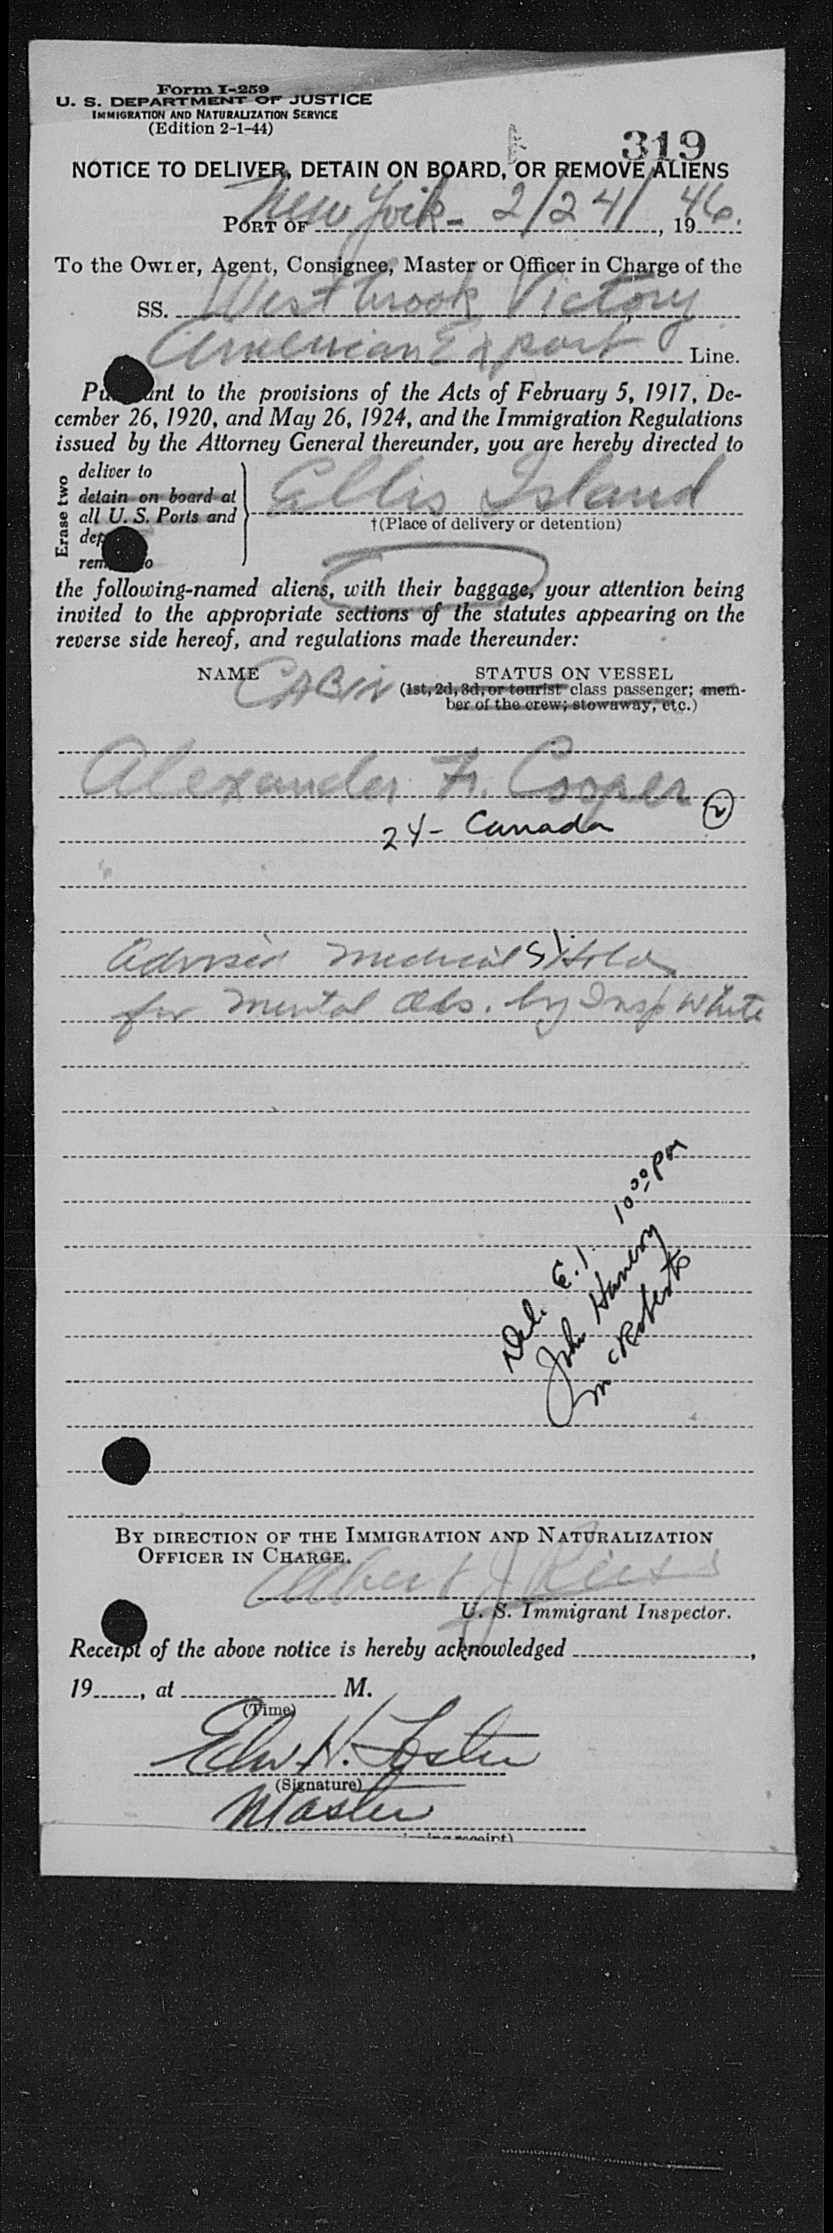 Form I-259
U. S. DEPARTMENT OF JUSTICE
IMMIGRATION AND NATURALIZATION SERVICE
(Edition 2-1-44)
319
NOTICE TO DELIVER, DETAIN ON BOARD, OR REMOVE ALIENS
PORT OF New York - 2/24/, 1946.
To the Owner, Agent, Consignee, Master or Officer in Charge of the
SS. Westbrook Victory
American Export Line.
Pursuant to the provisions of the Acts of February 5, 1917, De-
cember 26, 1920, and May 26, 1924, and the Immigration Regulations
issued by the Attorney General thereunder, you are hereby directed to
Erase two
deliver to
detain on board at
all U. S. Ports and
Ellis Island
†(Place of delivery or detention)
the following-named aliens, with their baggage, your attention being
invited to the appropriate sections of the statutes appearing on the
reverse side hereof, and regulations made thereunder:
NAME CABIN STATUS ON VESSEL
(1st, 2d, 3d, or tourist class passenger; mem-
ber of the crew; stowaway, etc.)
Alexander Fr. Cooper 2
24 - Canada
Medical Hold
for Mental Obs. by Insp White
Del. E.I. 10:00 PM
John
McRoberts
BY DIRECTION OF THE IMMIGRATION AND NATURALIZATION
OFFICER IN CHARGE.
Albert J
U. S. Immigrant Inspector.
Receipt of the above notice is hereby acknowledged ,
19 , at M.
(Time)
Edw H. Foster
(Signature)
Master
receipt)